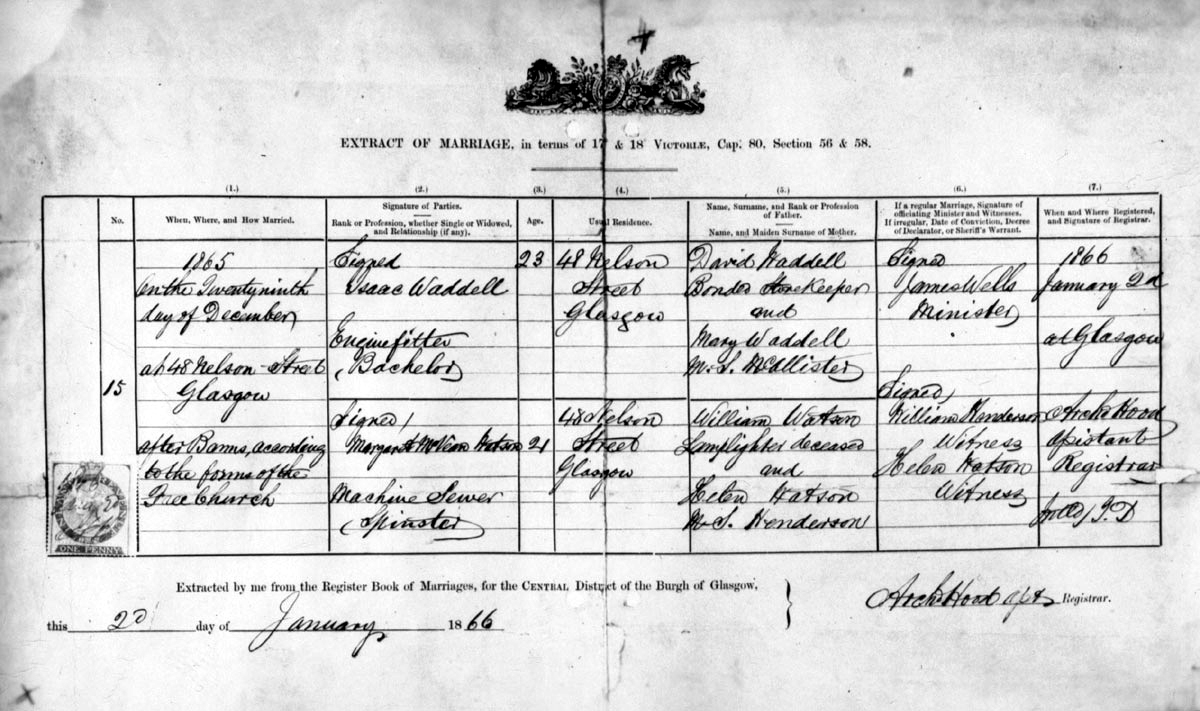 EXTRACT OF MARRIAGE, in terms of 17 & 18 VICTORIÆ, Cap. 80, Section 56 & 58.
(1.) (2.) (3.) (4.) (5.) (6.) (7.)
No.
When, Where, and How Married.
Signature of Parties.
Rank or Profession, whether Single or Widowed,
and Relationship (if any).
Age.
Usual Residence.
Name, Surname, and Rank or Profession
of Father.
Name, and Maiden Surname of Mother.
If a regular Marriage, Signature of
officiating Minister and Witnesses.
If irregular, Date of Conviction, Decree
of Declarator, or Sheriff's Warrant.
When and Where Registered,
and Signature of Registrar.
15
1865
On the Twentyninth
day of December
at 48 Nelson Street
Glasgow
after Banns, according
to the forms of the
Free Church
Signed
Isaac Waddell
Enginefitter
(Bachelor)
Signed
Margaret McVean Watson
Machine Sewer
(Spinster)
23
21
48 Nelson
Street
Glasgow
48 Nelson
Street
Glasgow
David Waddell
Bonded Storekeeper
and
Mary Waddell
M.S. McAllister
William Watson
Lamplighter deceased
and
Helen Watson
M.S. Henderson
Signed
James Wells
Minister
Signed
William Henderson
Witness
Helen Watson
Witness
1866
January 2d
at Glasgow
Archd Hood
Assistant
Registrar
J.D
ONE PENNY
Extracted by me from the Register Book of Marriages, for the CENTRAL District of the Burgh of Glasgow,
this 2d day of January 1866
Archd Hood Asst Registrar.